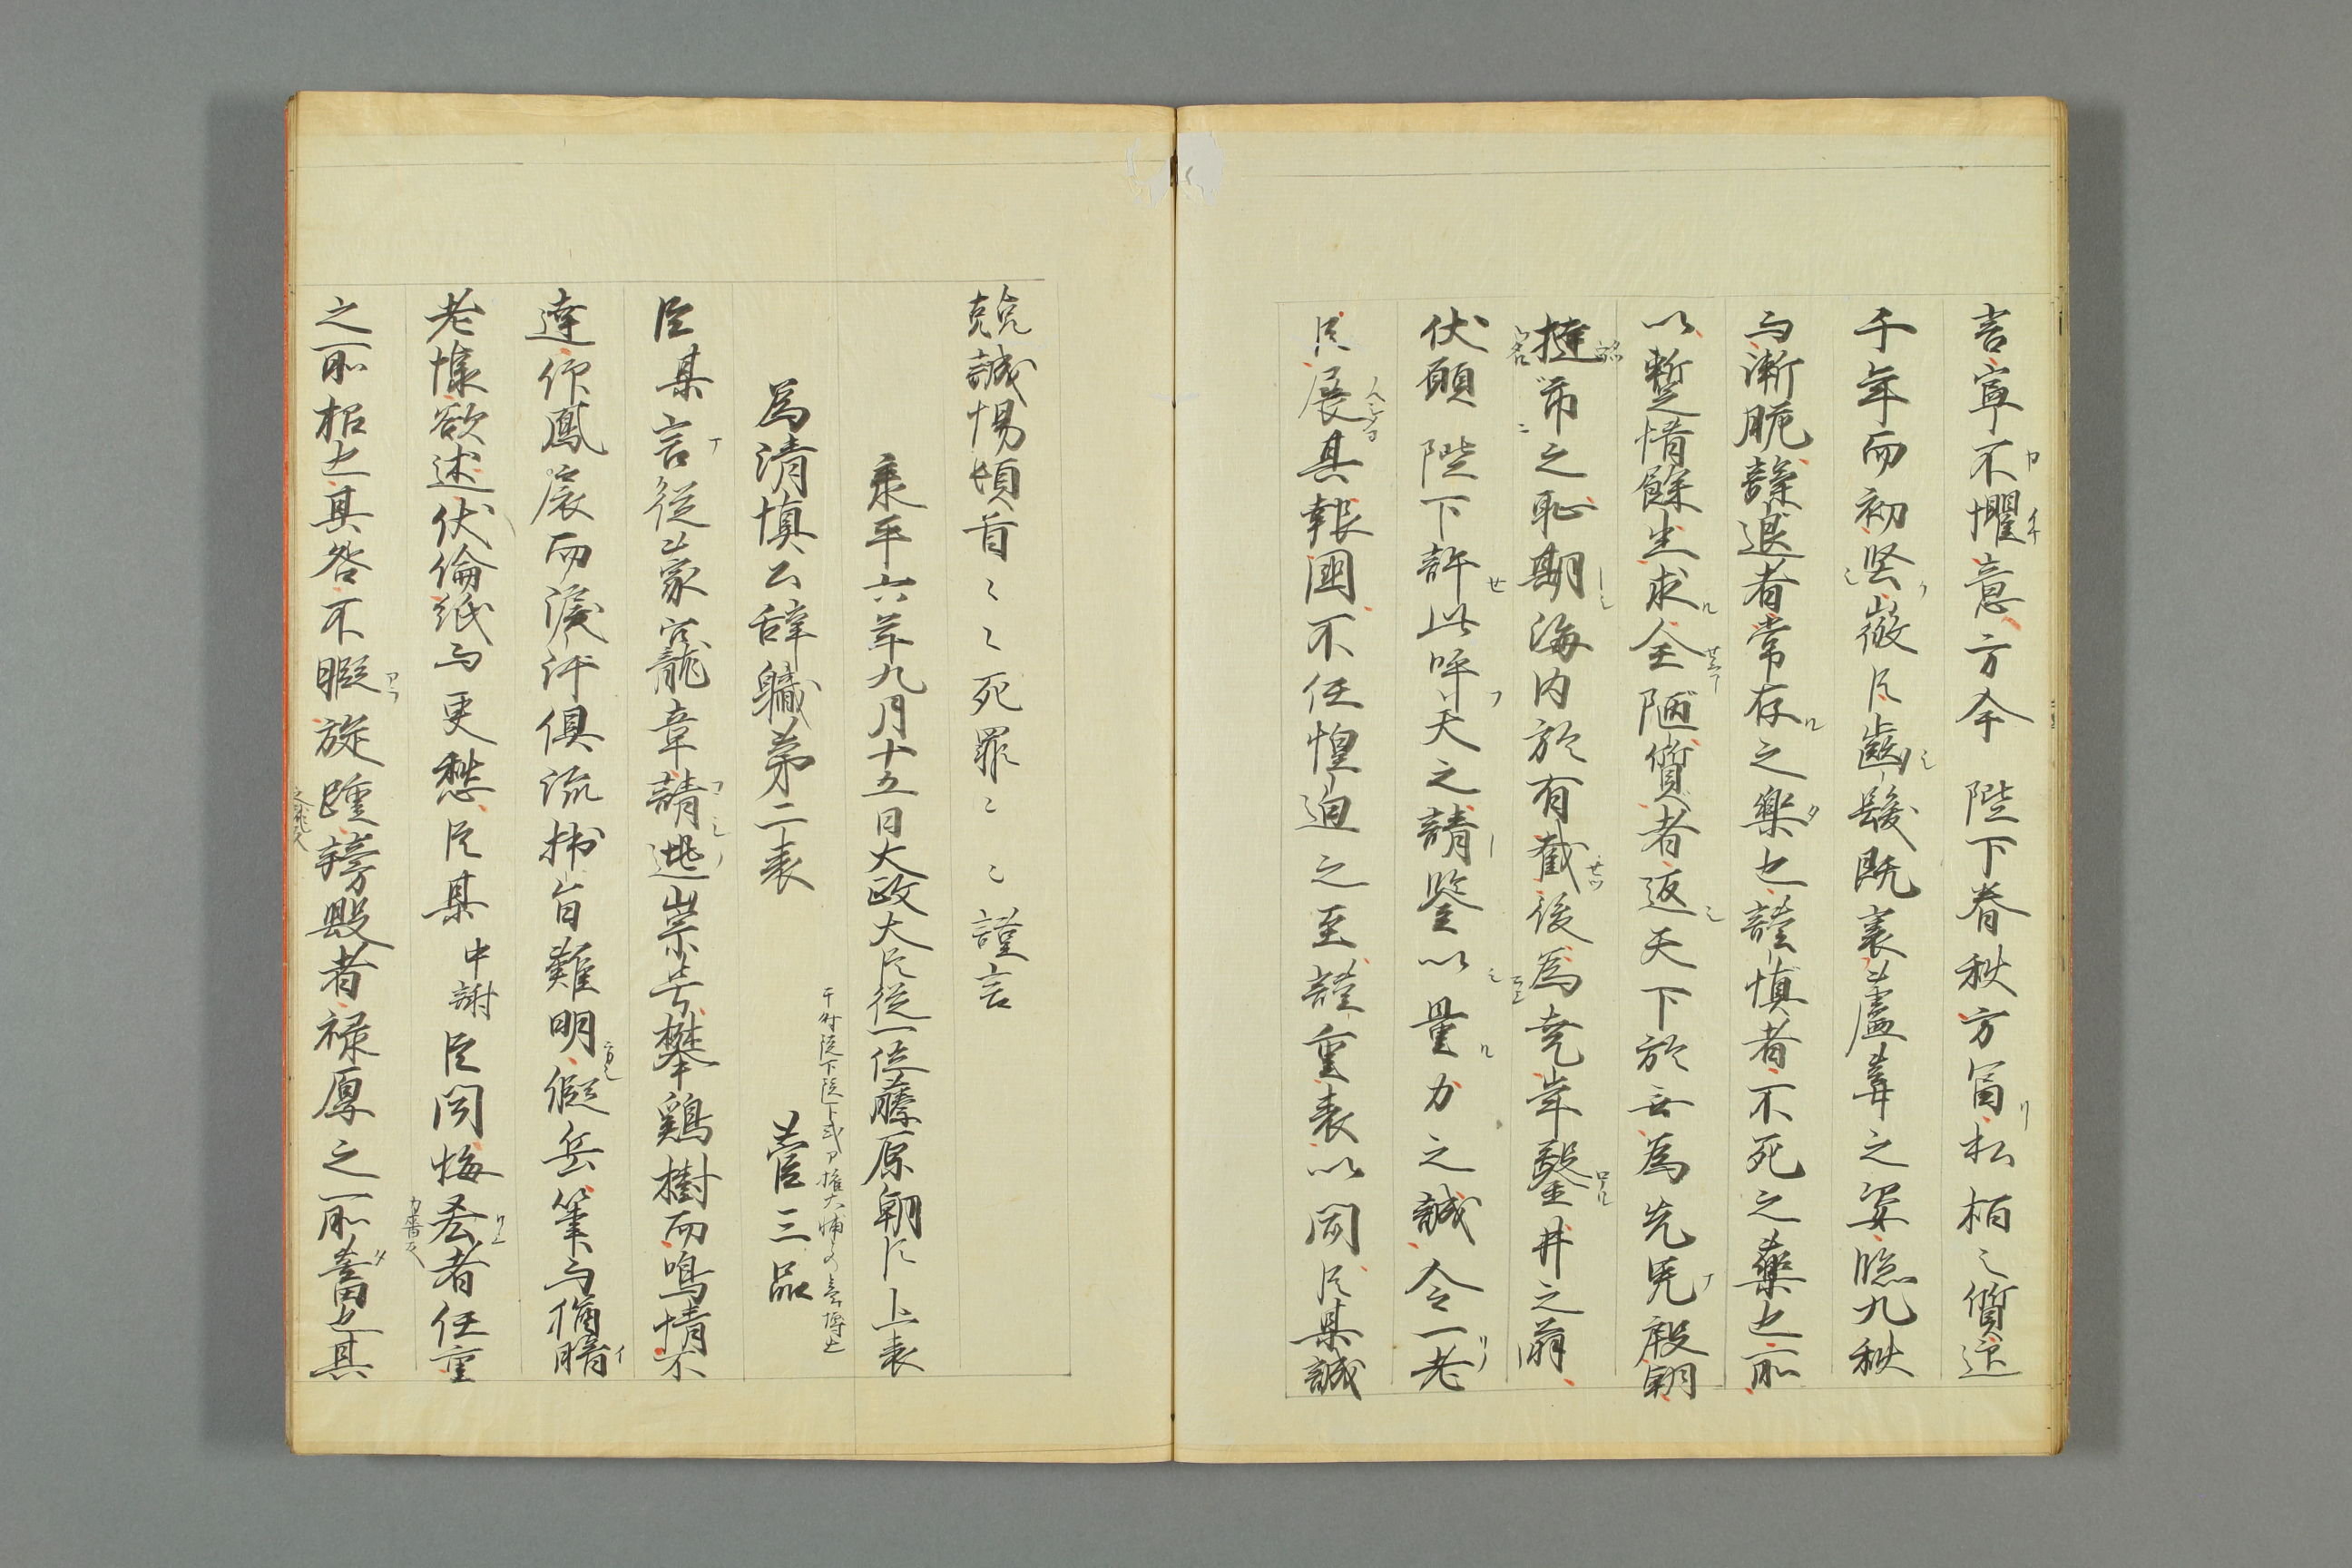 言寧不懼意方今　陛下春秋方富松栢之質送
千年而初堅微臣齒髮既衰蘆葦之姿臨九秋
而漸脆辞退者常存之藥也謹慎者不死之藥也所
以暫惜餘生求全陋質者返天下於無為先免殷朝
撻市之恥期海内於有截後為堯年鑿井之翁
伏願　陛下許此呼天之請鑒以量力之誠令一老
臣展其報國不任惶迫之至謹重表以聞臣某誠
兢誠惕頓首〻〻死罪〻〻謹言
承平六年九月十五日大政大臣従一位藤原朝臣上表
為清慎公辞職第二表　菅三品
臣某言従蒙寵章請逃崇号攀鷄樹而鳴情不
達仰鳳扆而涙汗俱流拂旨難明假岳筆而猶暗
老懷欲述伏倫紙而更愁臣某　中謝　臣聞悔吝者任重
之所招也其咎不暇旋踵謗毀者禄厚之所蓄也其